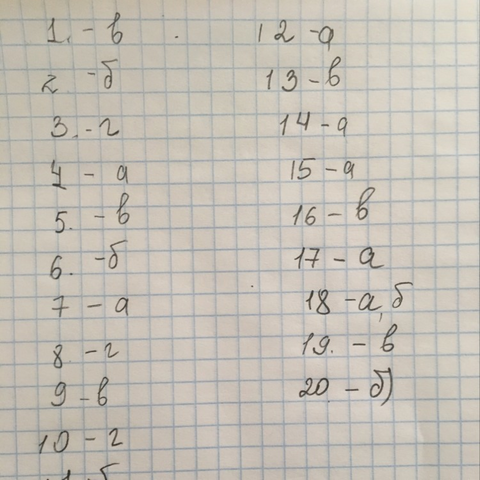 1. - в
2 - б
3. - г
4 - а
5. - в
6. - б
7 - а
8. - г
9 - в
10 - г
12 - а
13 - в
14 - а
15 - а
16 - в
17 - а
18 - а, б
19. - в
20 - б)